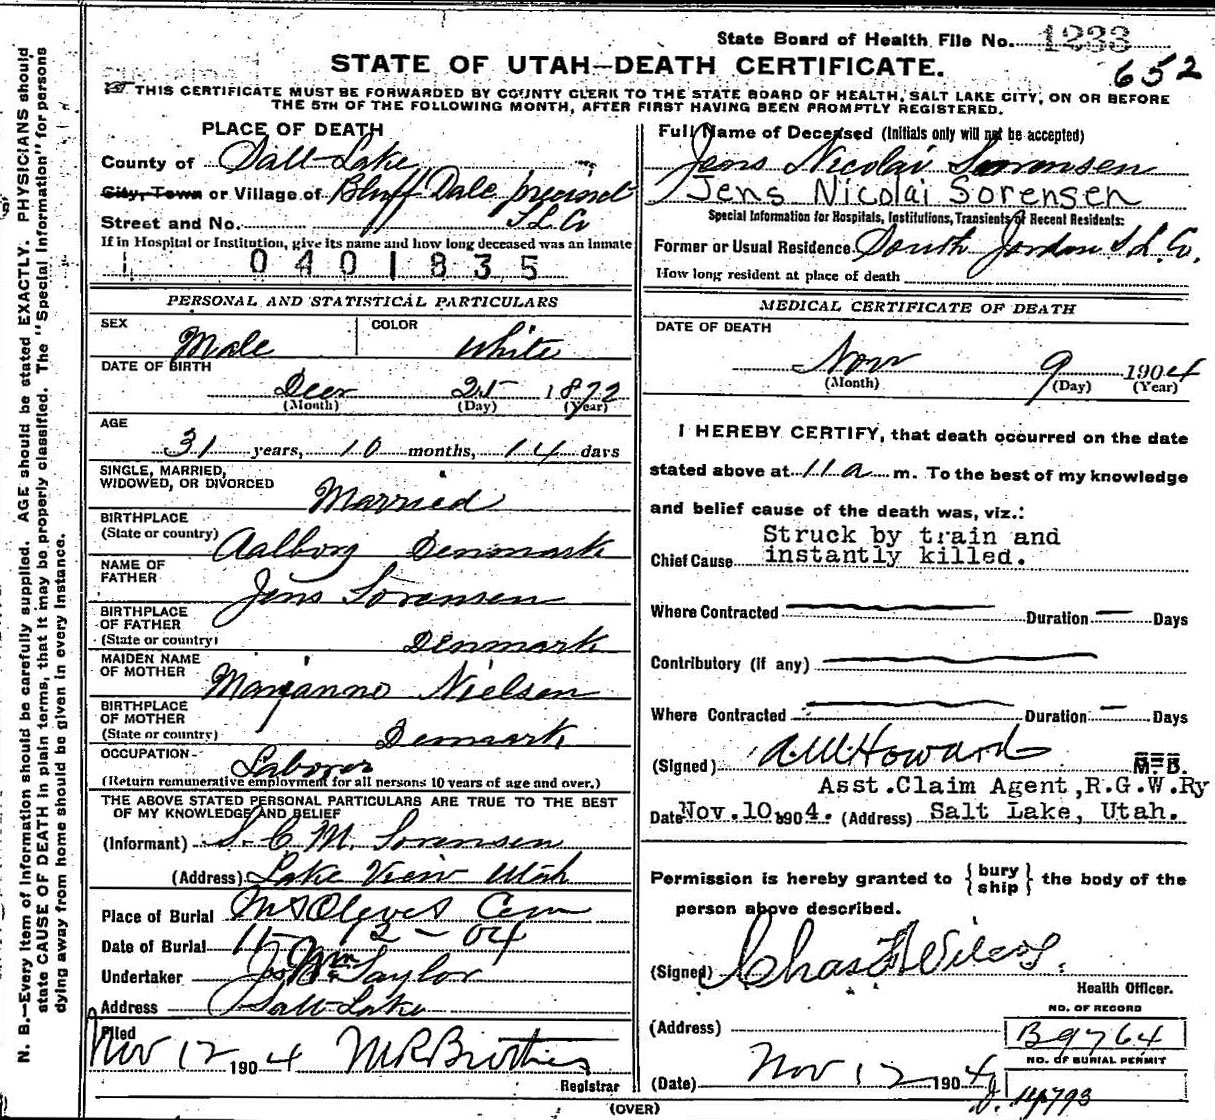 State Board of Health File No. 1233
652
STATE OF UTAH—DEATH CERTIFICATE.
THIS CERTIFICATE MUST BE FORWARDED BY COUNTY CLERK TO THE STATE BOARD OF HEALTH, SALT LAKE CITY, ON OR BEFORE
THE 5TH OF THE FOLLOWING MONTH, AFTER FIRST HAVING BEEN PROMPTLY REGISTERED.
N. B.—Every item of information should be carefully supplied. AGE should be stated EXACTLY. PHYSICIANS should
state CAUSE OF DEATH in plain terms, that it may be properly classified. The "Special Information" for persons
dying away from home should be given in every instance.
PLACE OF DEATH
County of Salt Lake
City, Town or Village of Bluff Dale precinct
Street and No. S.L.Co
If in Hospital or Institution, give its name and how long deceased was an inmate
1 0401835
PERSONAL AND STATISTICAL PARTICULARS
SEX Male COLOR White
DATE OF BIRTH
Decr 25 1872
(Month) (Day) (Year)
AGE
31 years, 10 months, 14 days
SINGLE, MARRIED,
WIDOWED, OR DIVORCED Married
BIRTHPLACE
(State or country) Aalborg Denmark
NAME OF
FATHER Jens Sorensen
BIRTHPLACE
OF FATHER
(State or country) Denmark
MAIDEN NAME
OF MOTHER Nielsen
BIRTHPLACE
OF MOTHER
(State or country) Denmark
OCCUPATION Laborer
(Return remunerative employment for all persons 10 years of age and over.)
THE ABOVE STATED PERSONAL PARTICULARS ARE TRUE TO THE BEST
OF MY KNOWLEDGE AND BELIEF
(Informant) S. C. M. Sorensen
(Address) Lake View Utah
Place of Burial Mt Olevet Cem
Date of Burial 11-12-04
Undertaker Jos Wm Taylor
Address Salt Lake
Filed
Nov 12 1904
Registrar
Full Name of Deceased (Initials only will not be accepted)
Jens Nicolai Sorensen
Jens Nicolai Sorensen
Special Information for Hospitals, Institutions, Transients or Recent Residents:
Former or Usual Residence South Jordan S.L.Co.
How long resident at place of death
MEDICAL CERTIFICATE OF DEATH
DATE OF DEATH
Nov 9 1904
(Month) (Day) (Year)
I HEREBY CERTIFY, that death occurred on the date
stated above at 11 a m. To the best of my knowledge
and belief cause of the death was, viz.:
Chief Cause Struck by train and
instantly killed.
Where Contracted Duration Days
Contributory (if any)
Where Contracted Duration Days
(Signed) A.W. Howard M. D.
Asst.Claim Agent,R.G.W.Ry
Date Nov.10, 1904. (Address) Salt Lake, Utah.
Permission is hereby granted to {bury
ship} the body of the
person above described.
(Signed) Chas F Wilcox.
Health Officer.
NO. OF RECORD
(Address) B9764
NO. OF BURIAL PERMIT
(Date) Nov 12 1904
(OVER)